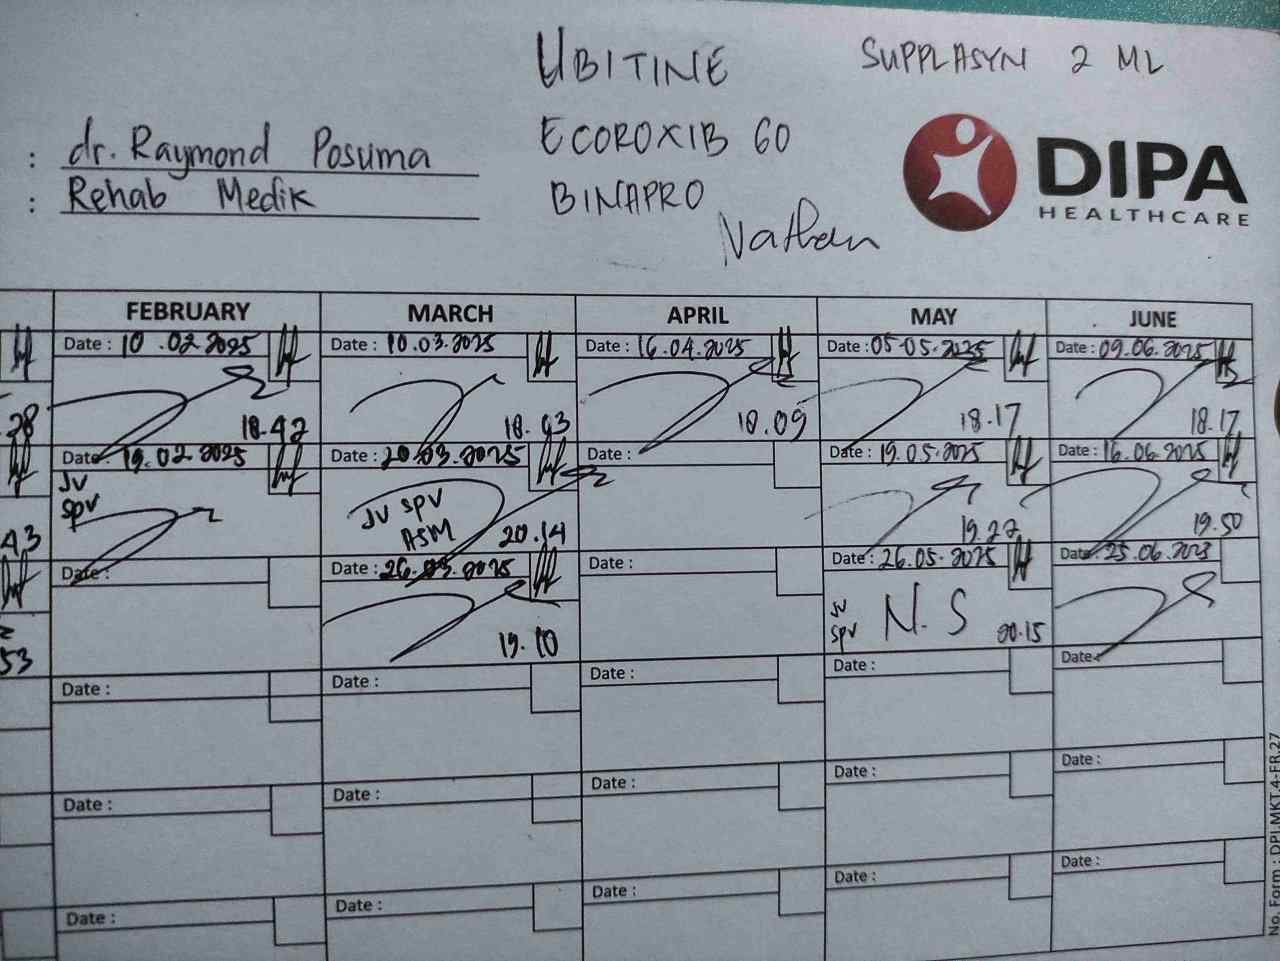 UBITINE SUPPLASYN 2 ML
: dr. Raymond Posuma ECOROXIB 60
: Rehab Medik BINAPRO
Nathan
DIPA
HEALTHCARE
FEBRUARY MARCH APRIL MAY JUNE
Date : 10.02.2025 Date : 10.03.2025 Date : 16.04.2025 Date : 05.05.2025 Date : 09.06.2025
18.42 18.43 18.09 18.17 18.17
Date : 19.02.2025 Date : 20.03.2025 Date : Date : 19.05.2025 Date : 16.06.2025
JV JV SPV
SPV ASM 20.14 19.27 19.50
43
Date : Date : 26.03.2025 Date : Date : 26.05.2025 Date : 25.06.2023
JV N.S
SPV 20.15
19.10
53
Date : Date : Date : Date : Date :
Date : Date : Date : Date : Date :
Date : Date : Date : Date : Date :
No. Form : DPI.MKT.4-FR.27